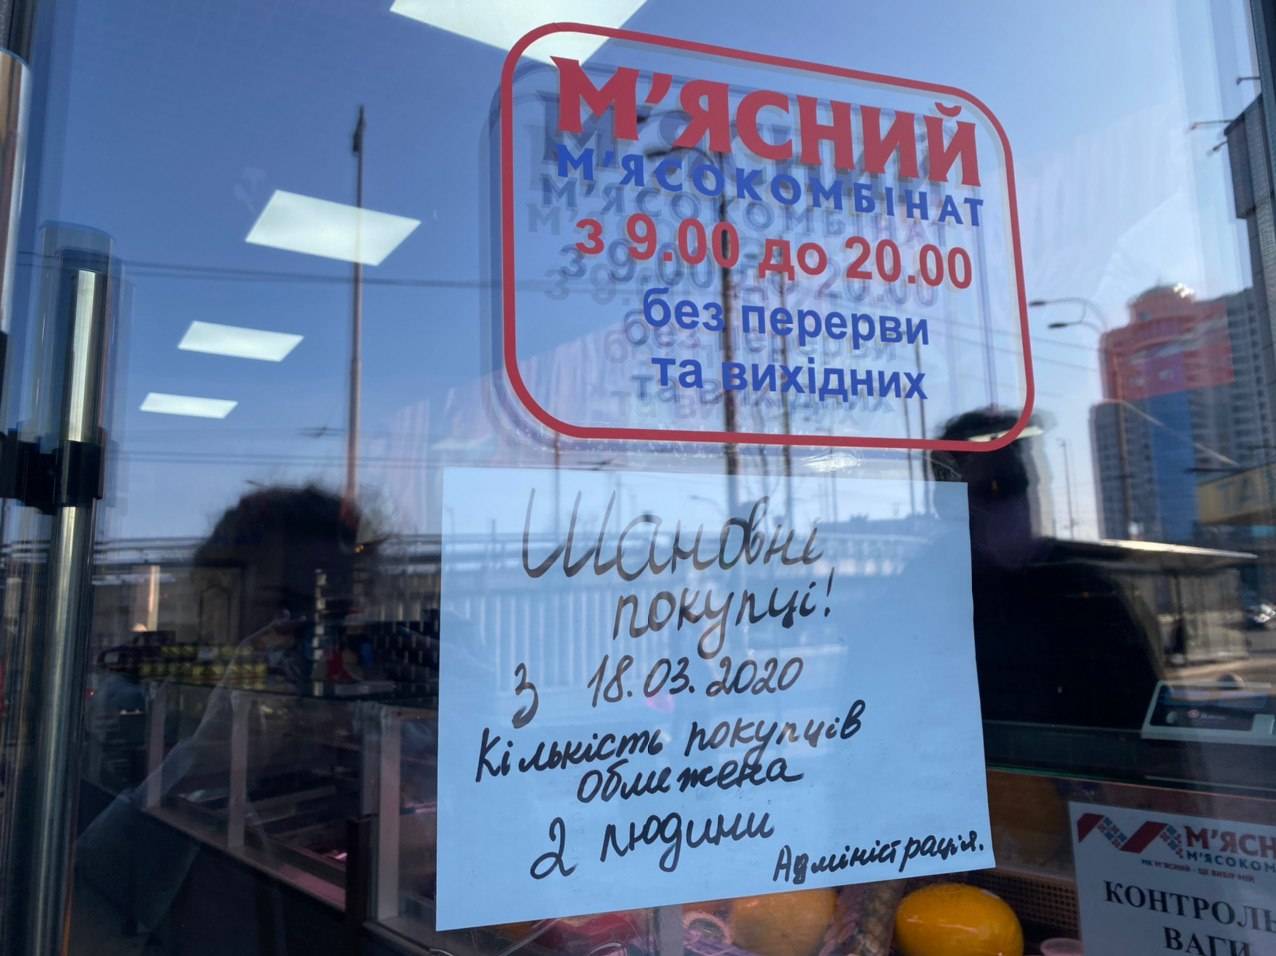 М'ЯСНИЙ
М'ЯСОКОМБІНАТ
з 9.00 до 20.00
без перерви
та вихідних
Шановні
покупці!
З 18.03.2020
Кількість покупців
обмежена
2 людини
Адміністрація.
М'ЯСН
М'ЯСОКОМ
КОНТРОЛЬ
ВАГИ